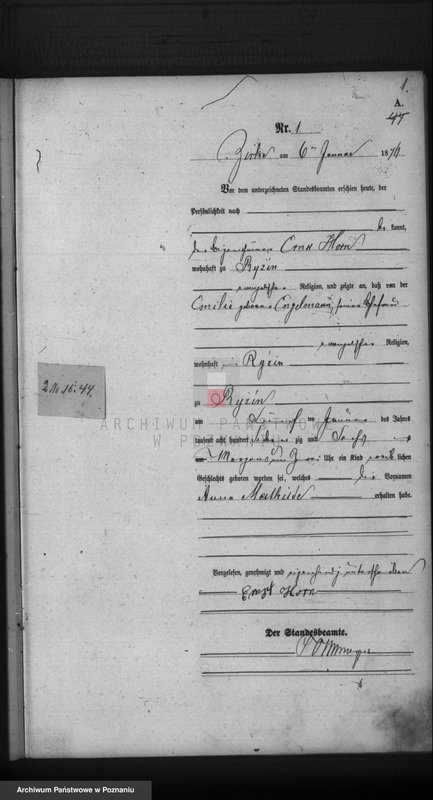 1.
A.
44
Nr. 1
Zirke am 6ten Januar 187
Vor dem unterzeichneten Standesbeamten erschien heute, der
Persönlichkeit nach
be kannt,
der Ernst Horn
wohnhaft zu Ryzin
evangelischer Religion, und zeigte an, daß von der
Emilie geborene Engelmann, seiner Ehefrau
evangelischer Religion,
wohnhaft in Ryzin
zu Ryzin
am ten Januar des Jahres
tausend acht hundert zig und Sechs
Morgens um Uhr ein Kind weib lichen
Geschlechts geboren worden sei, welches die Vornamen
Anna Mathilde erhalten habe.
Vorgelesen, genehmigt und eigenhändig unterschrieben
Ernst Horn
Der Standesbeamte.
2.10.15.44.
ARCHIWUM PAŃSTWOWE
W POZNANIU
Archiwum Państwowe w Poznaniu